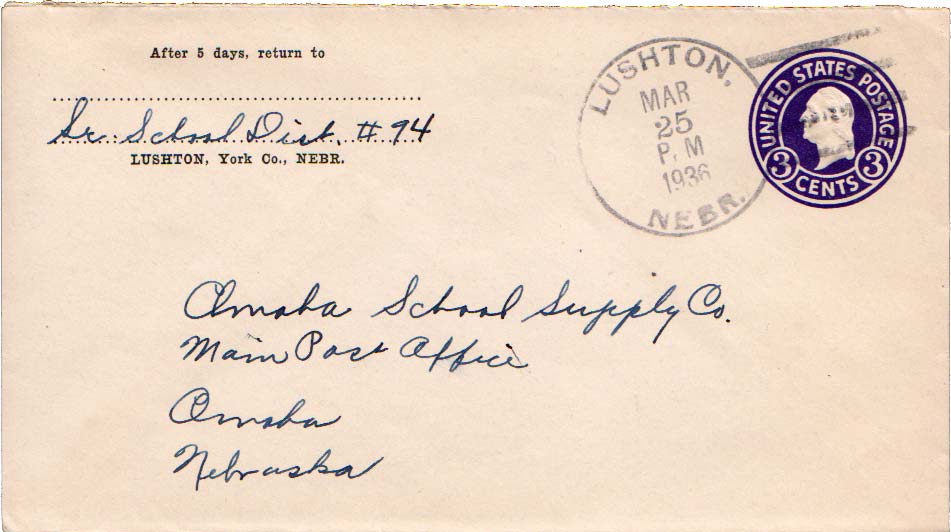 After 5 days, return to
Sr. School Dist. # 94
LUSHTON, York Co., NEBR.
LUSHTON,
MAR
25
P.M
1936
NEBR.
UNITED STATES POSTAGE
3 3
CENTS
Omaha School Supply Co.
Main Post Office
Omaha
Nebraska